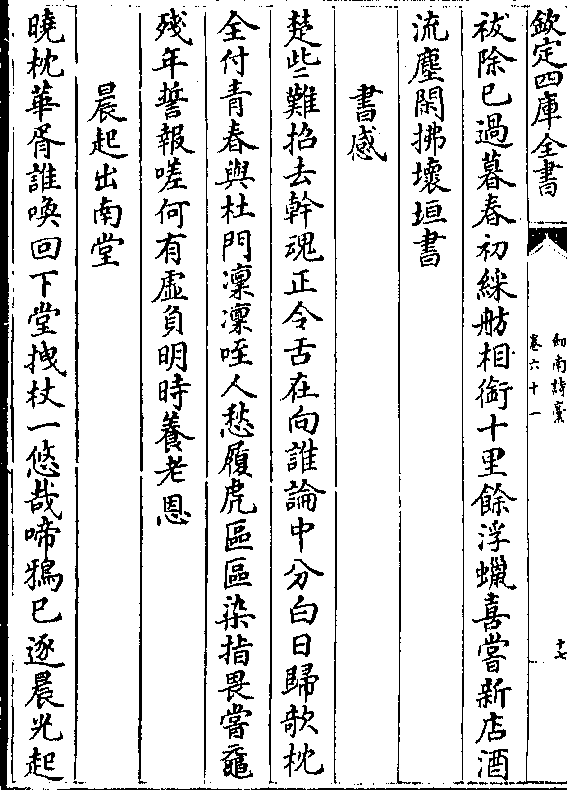 欽定四庫全書
劍南詩藁
卷六十一
十七
祓除已過暮春初綵舫相銜十里餘浮蠟喜嘗新店酒
流塵閑拂壞垣書
書感
楚些難招去幹魂正令舌在向誰論中分白日歸欹枕
全付青春與杜門凜凜咥人愁履虎區區染指畏嘗黿
殘年誓報嗟何有虛負明時養老恩
晨起出南堂
曉枕華胥誰喚回下堂拽杖一悠哉啼鴉已逐晨光起